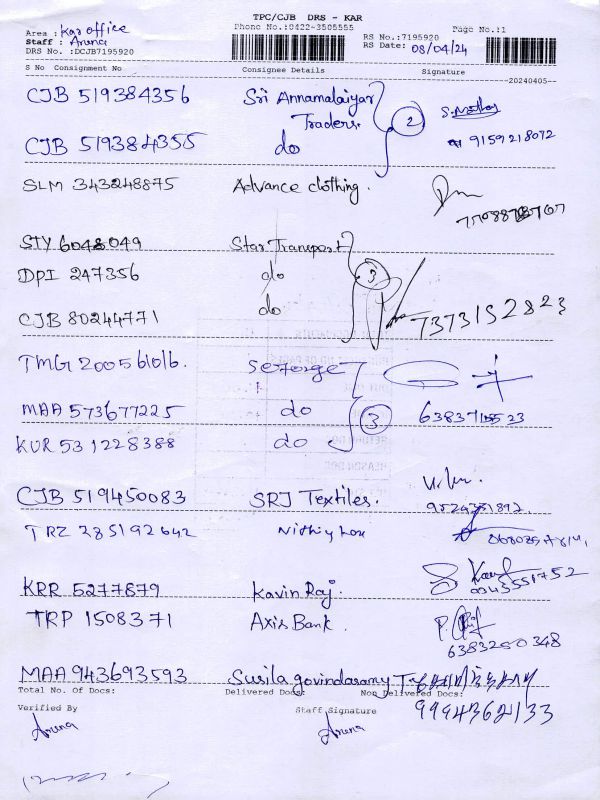 TPC/CJB DRS - KAR
Phone No.:0422-3505555
Page No.:1
Area : Kar office
Staff : Aruna
DRS No. :DCJB7195920
RS No.:7195920
RS Date: 08/04/24
S No Consignment No Consignee Details Signature
20240405
CJB 519384356 Sri Annamalaiyar Traders.
CJB 519384355 do 2 9159218072
SLM 343248875 Advance clothing.
STY 6048049 Star Transport
DPI 247356 do 3
CJB 80244771 do 7373152823
TMG 200561016. Seforge
MAA 573677225 do 3
KUR 531228388 do
CJB 519450083 SRJ Textiles.
TRZ 285192642
KRR 5277879 Kavin Raj.
TRP 1508371 Axis Bank. 6383250348
MAA 943693593 Susila govindasamy
Total No. Of Docs: Delivered Docs: Non Delivered Docs:
9994362133
Verified By Staff Signature
Aruna Aruna